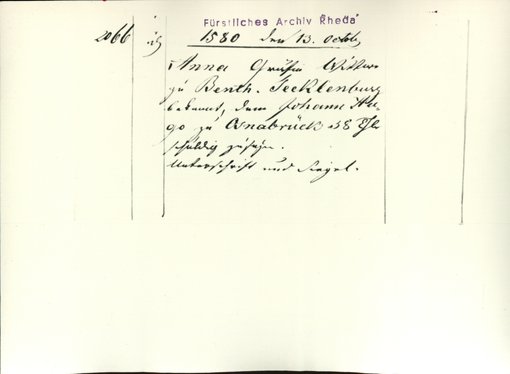 Fürstliches Archiv Rheda
2066
1580 den 13. Octob.
Anna Gräfin Wittwe
zu Benth. Tecklenburg
bekennt, dem Johann Hu-
go zu Osnabrück 58 Thl
schuldig zu sein.
Unterschrift und Siegel.